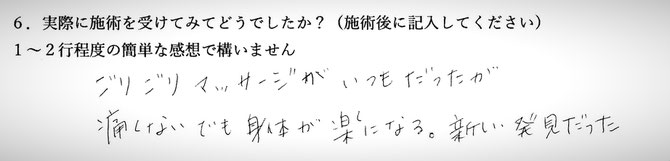 ６．実際に施術を受けてみてどうでしたか？（施術後に記入してください）
１～２行程度の簡単な感想で構いません
ゴリゴリマッサージがいつもだったが
痛くないでも身体が楽になる。新しい発見だった